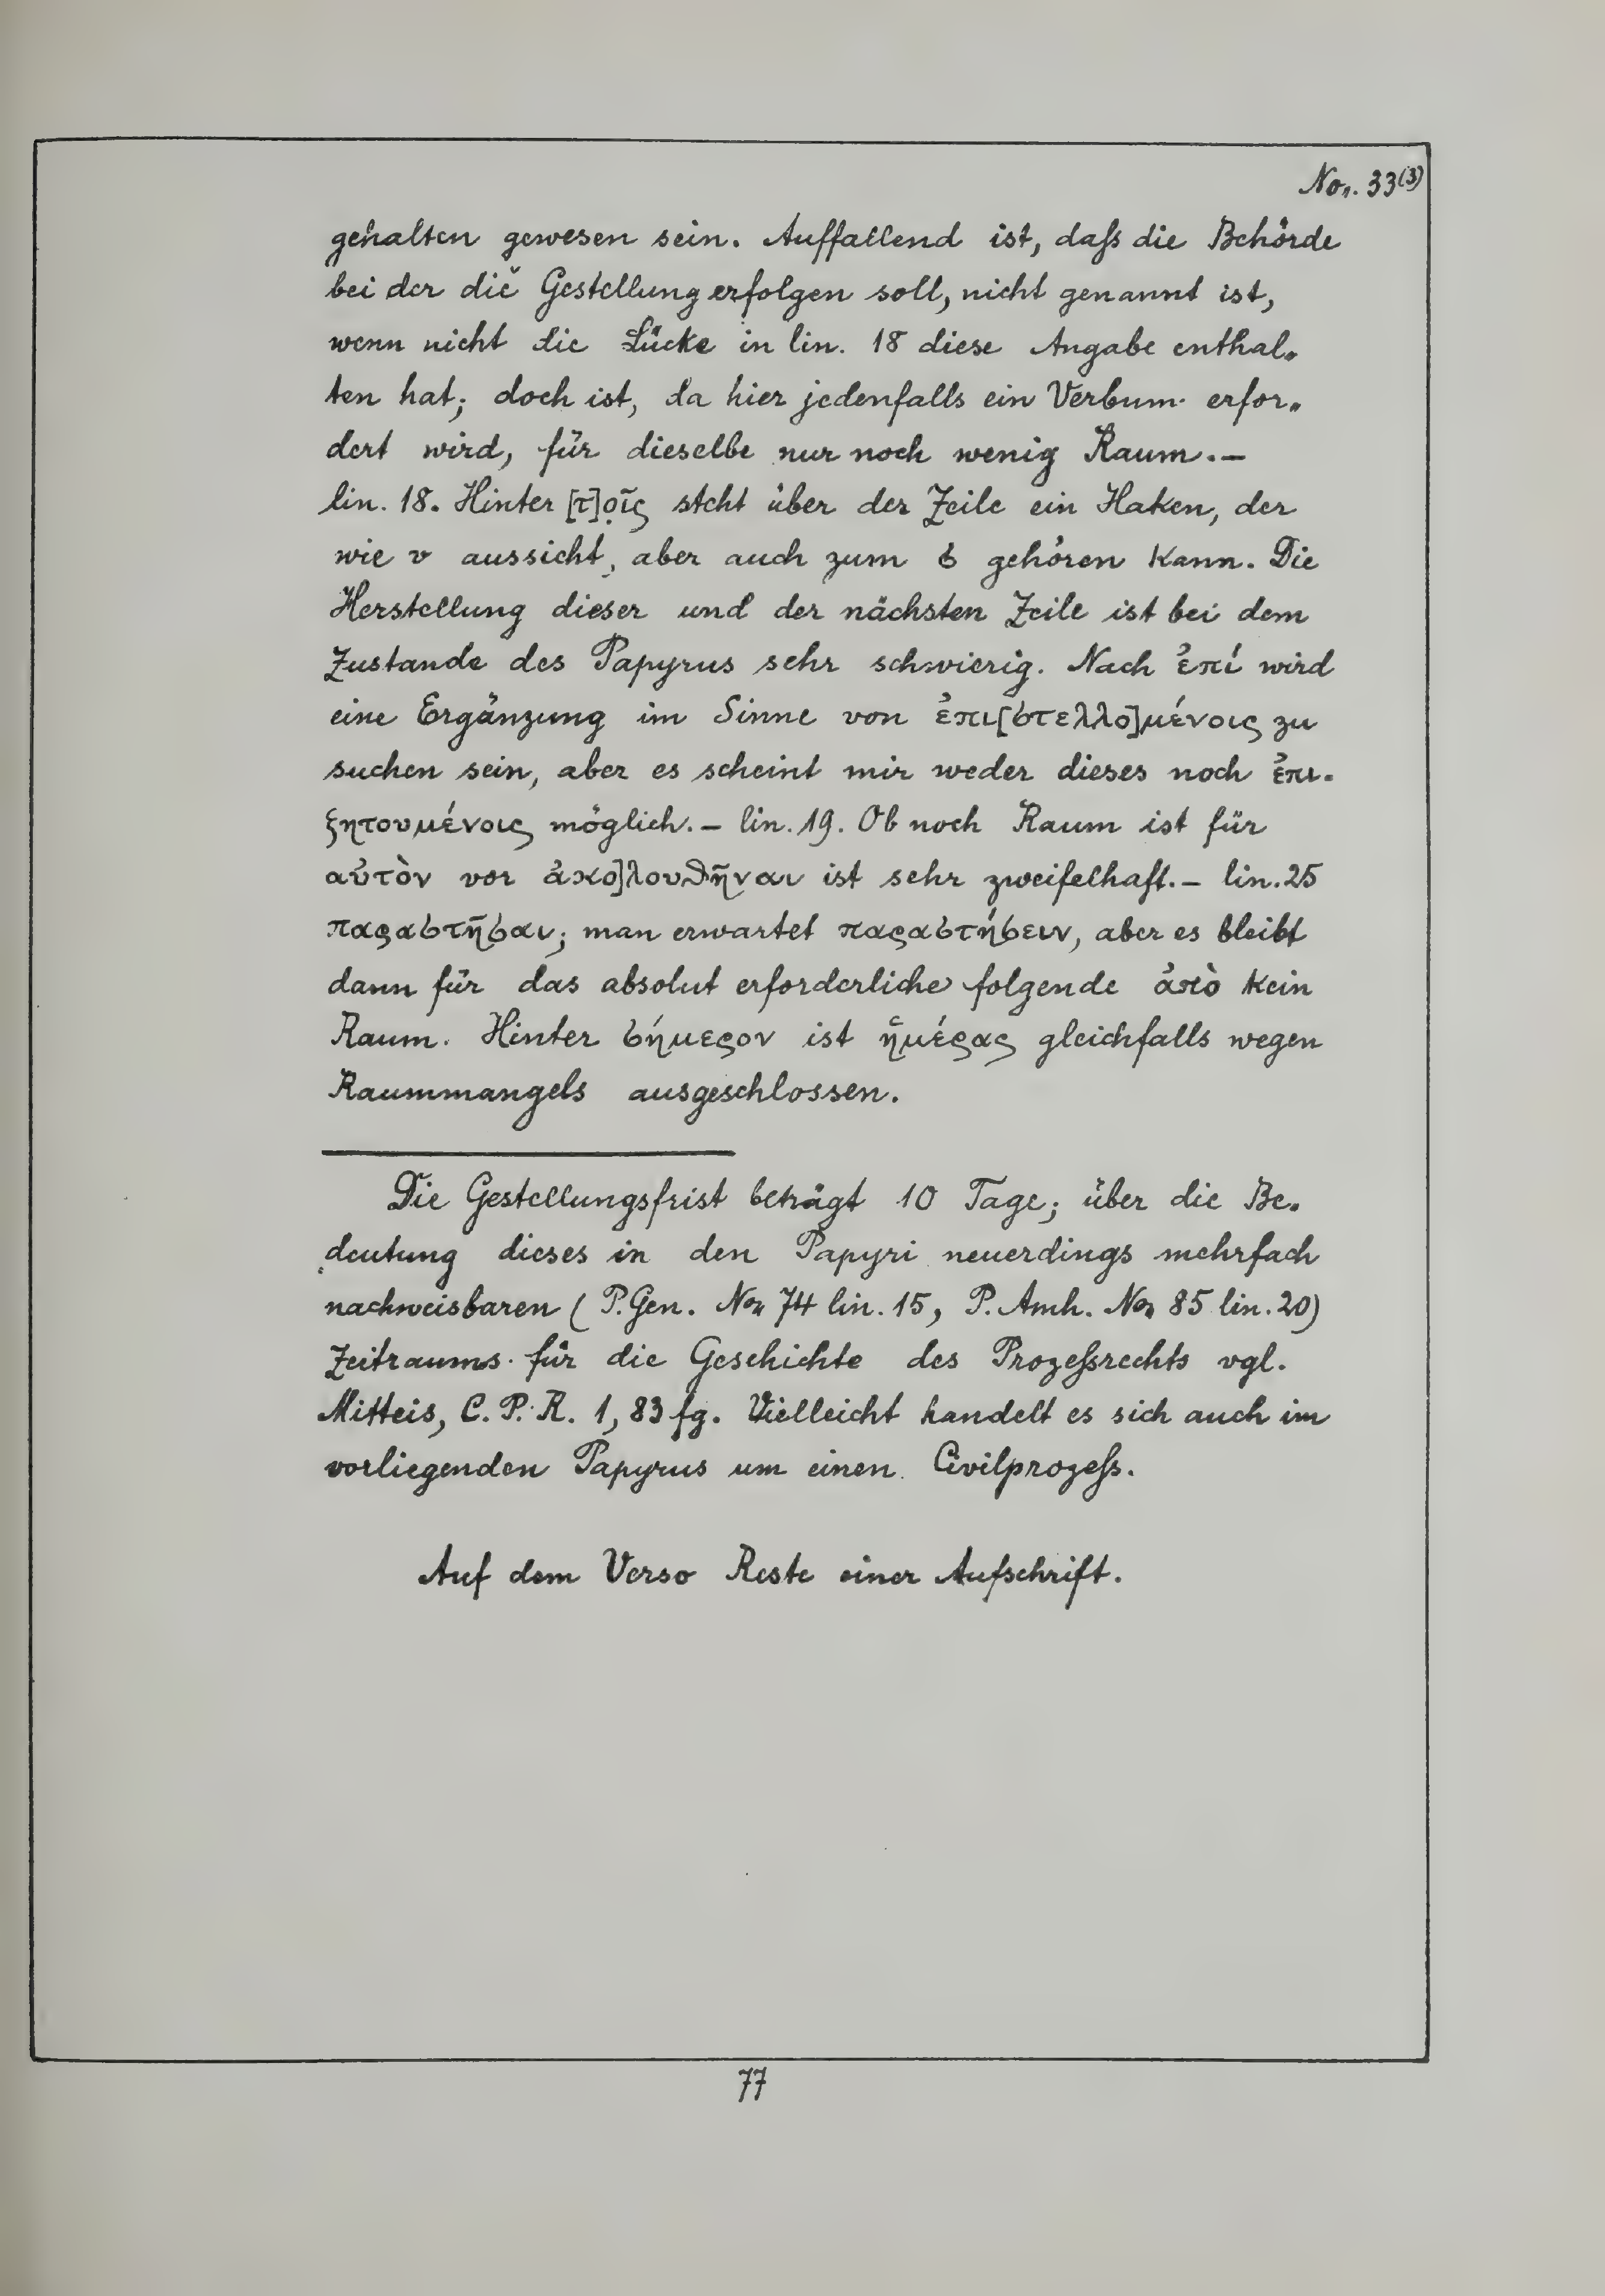 No. 33(3)
gehalten gewesen sein. Auffallend ist, daſs die Behörde
bei der die Gestellung erfolgen soll, nicht genannt ist,
wenn nicht die Lücke in lin. 18 diese Angabe enthal-
ten hat; doch ist, da hier jedenfalls ein Verbum erfor-
dert wird, für dieselbe nur noch wenig Raum. –
lin. 18. Hinter [τ]ο̣ῖς steht über der Zeile ein Haken, der
wie v aussieht, aber auch zum σ gehören kann. Die
Herstellung dieser und der nächsten Zeile ist bei dem
Zustande des Papyrus sehr schwierig. Nach ἐπί wird
eine Ergänzung im Sinne von ἐπι[στελλο]μένοις zu
suchen sein, aber es scheint mir weder dieses noch ἐπι-
ζητουμένοις möglich. – lin. 19. Ob noch Raum ist für
αὐτὸν vor ἀκο]λουθῆναι ist sehr zweifelhaft. – lin. 25
παραστῆσαι; man erwartet παραστήσειν, aber es bleibt
dann für das absolut erforderliche folgende ἀπὸ kein
Raum. Hinter σήμερον ist ἡμέρας gleichfalls wegen
Raummangels ausgeschlossen.
Die Gestellungsfrist beträgt 10 Tage; über die Be-
deutung dieses in den Papyri neuerdings mehrfach
nachweisbaren (P. Gen. No. 74 lin. 15, P. Amh. No. 85 lin. 20)
Zeitraums für die Geschichte des Prozeſsrechts vgl.
Mitteis, C. P. R. 1, 83 fg. Vielleicht handelt es sich auch im
vorliegenden Papyrus um einen Civilprozeſs.
Auf dem Verso Reste einer Aufschrift.
77